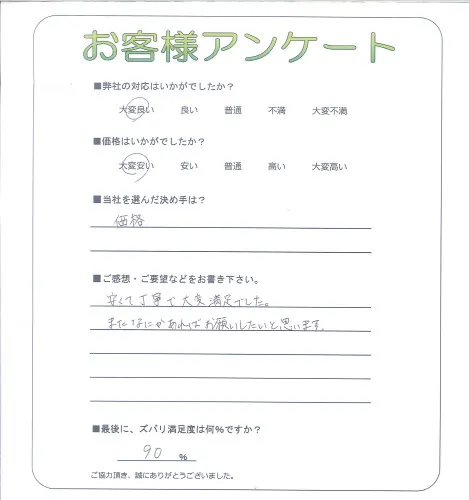 お客様アンケート
■弊社の対応はいかがでしたか？
大変良い 良い 普通 不満 大変不満
■価格はいかがでしたか？
大変安い 安い 普通 高い 大変高い
■当社を選んだ決め手は？
価格
■ご感想・ご要望などをお書き下さい。
安くて丁寧で大変満足でした。
またなにかあればお願いしたいと思います。
■最後に、ズバリ満足度は何%ですか？
90 %
ご協力頂き、誠にありがとうございました。